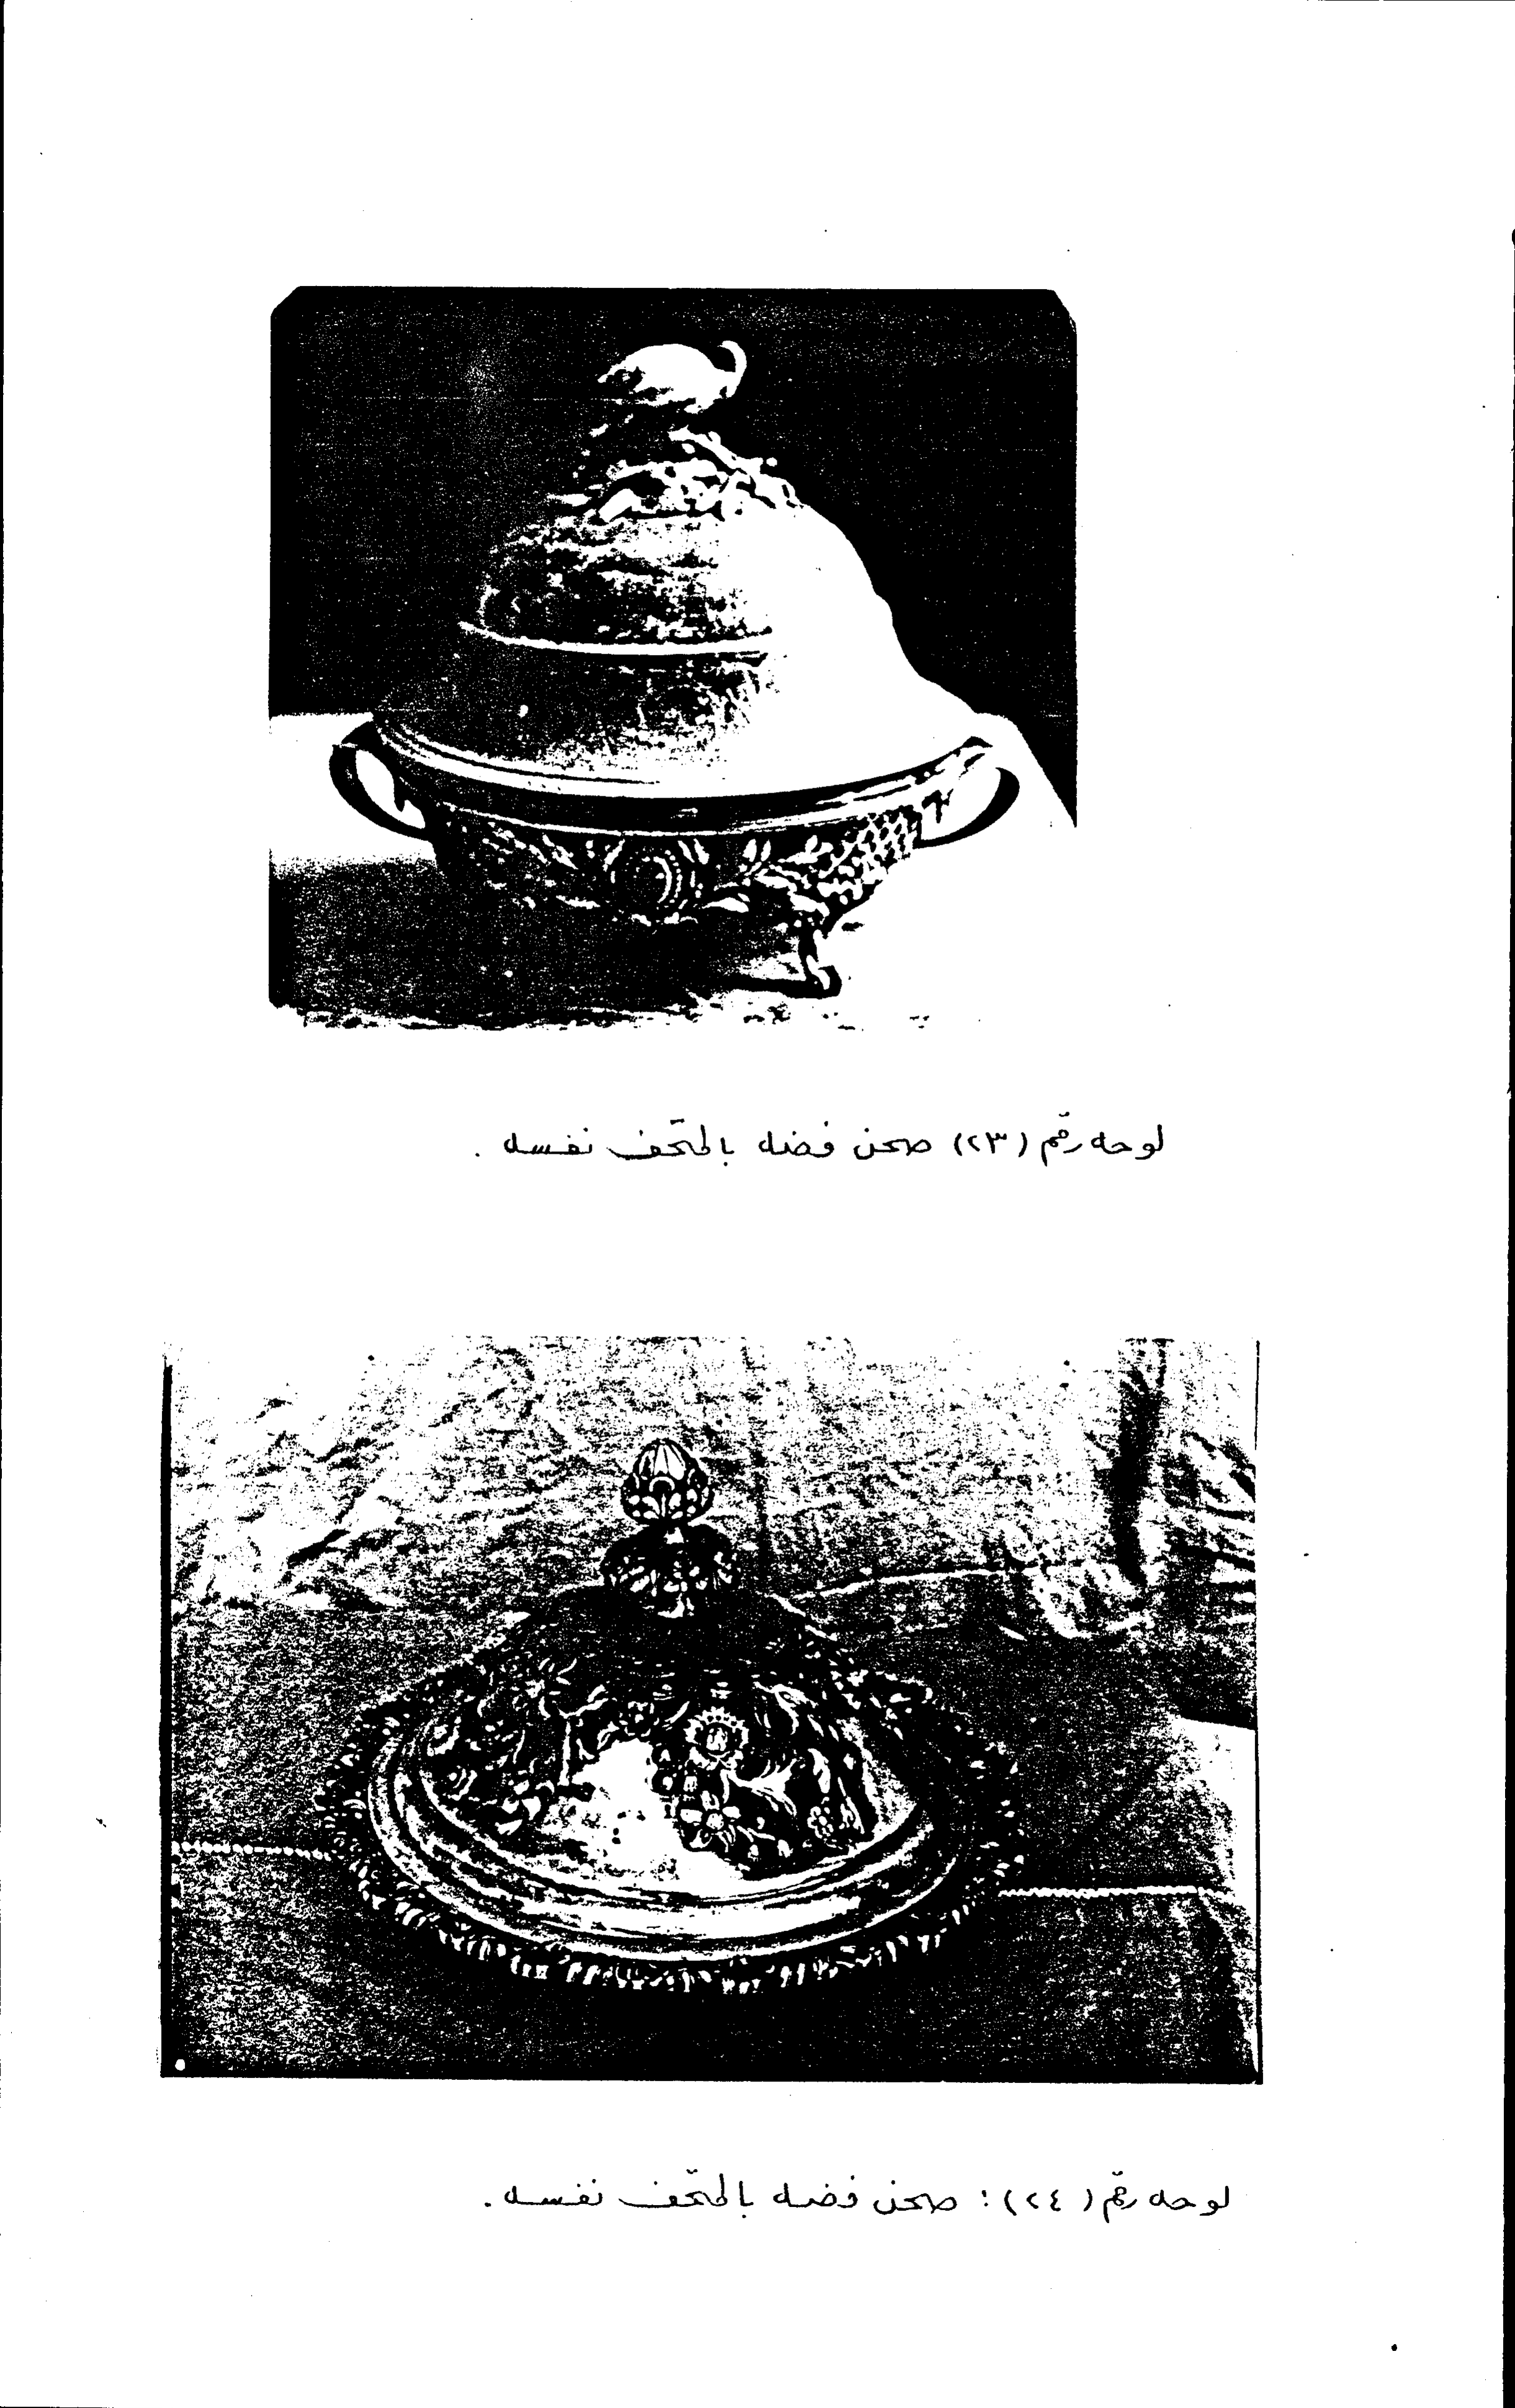 لوحه رقم (٢٣) صحن فضه بالمتحف نفسه .
لوحه رقم (٢٤) : صحن فضه بالمتحف نفسه .